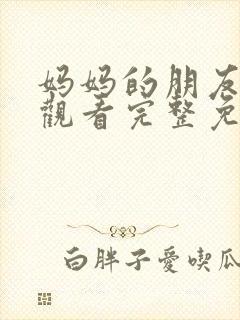 妈妈的朋友
觀看完整免
白胖子愛喫瓜